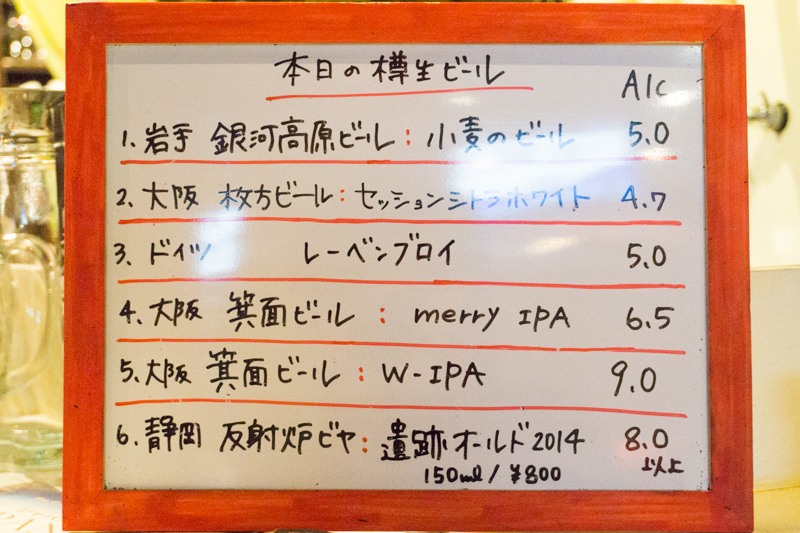 本日の樽生ビール Alc
1. 岩手 銀河高原ビール : 小麦のビール 5.0
2. 大阪 枚方ビール : セッションシトラホワイト 4.7
3. ドイツ レーベンブロイ 5.0
4. 大阪 箕面ビール : merry IPA 6.5
5. 大阪 箕面ビール : W-IPA 9.0
6. 静岡 反射炉ビヤ : 遺跡オールド2014 8.0以上
150ml/¥800